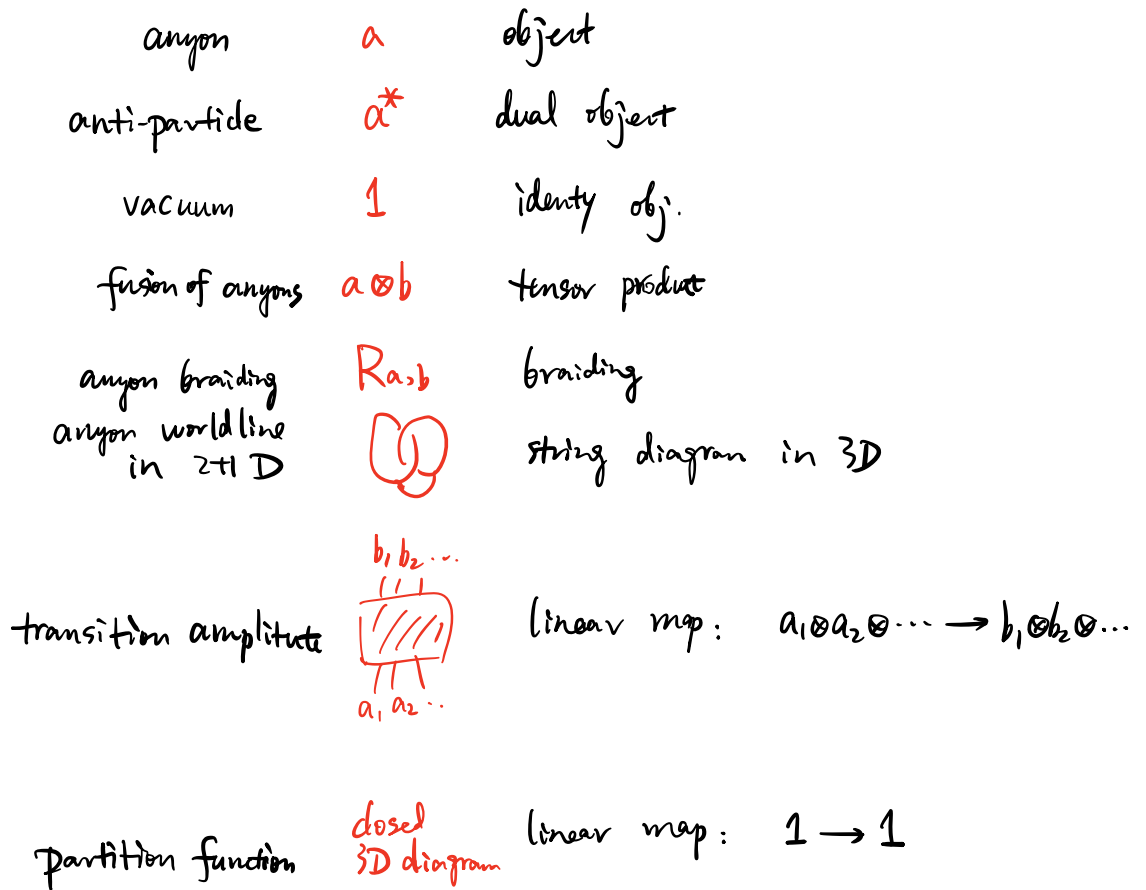 anyon a object
anti-particle a* dual object
vacuum 1 identy obj.
fusion of anyons a⊗b tensor product
anyon braiding R_{a,b} braiding
anyon worldline
in 2+1 D string diagram in 3D
b₁ b₂ ...
transition amplitute linear map: a₁⊗a₂⊗··· → b₁⊗b₂⊗...
a₁ a₂ ..
closed
partition function 3D diagram linear map: 1 → 1